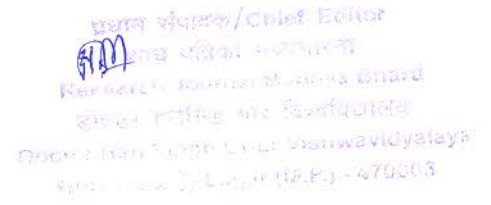 प्रधान संपादक/Chief Editor
शोध पत्रिका
Research Journal Madhya Bharti
डॉक्टर हरीसिंह गौर विश्वविद्यालय
Doctor Hari Singh Gour Vishwavidyalaya
(M.P.) - 470003